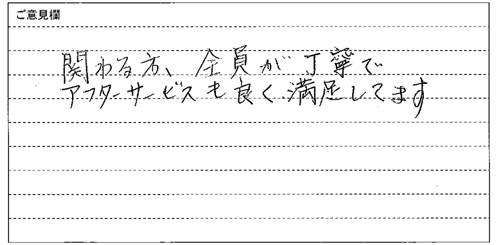 ご意見欄
関わる方、全員が丁寧で
アフターサービスも良く満足してます